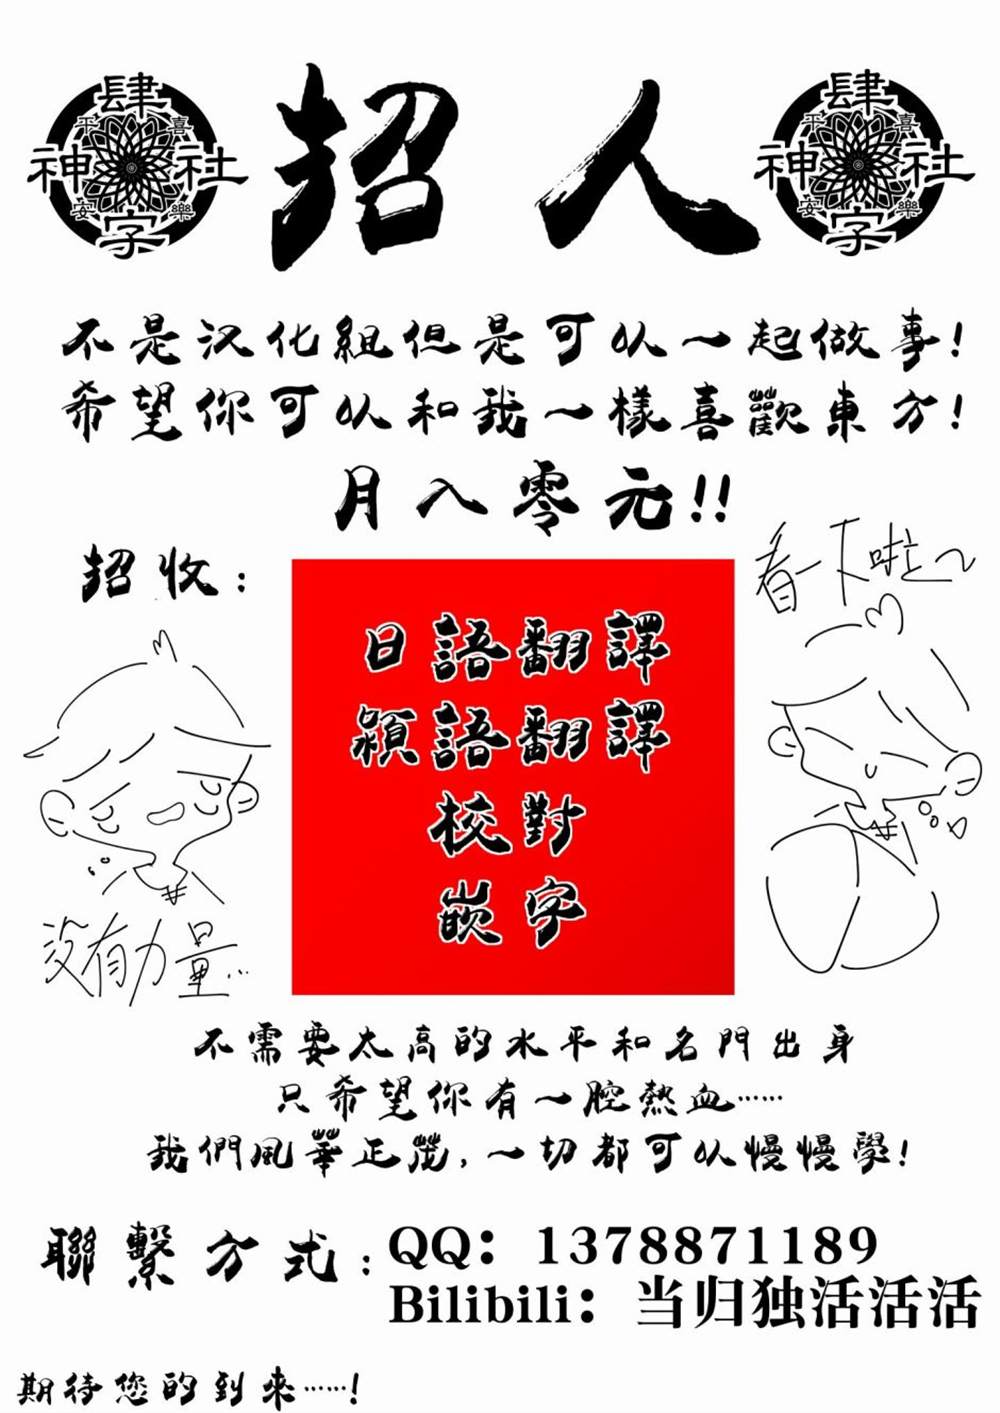 肆
平 喜
神 社
安 樂
字
招人
肆
平 喜
神 社
安 樂
字
不是汉化組但是可以一起做事！
希望你可以和我一樣喜歡東方！
月入零元!!
招收：
看一下啦~
日語翻譯
穎語翻譯
校對
嵌字
沒有力量...
不需要太高的水平和名門出身
只希望你有一腔熱血……
我們風華正茂，一切都可以慢慢學！
聯繫方式：QQ：1378871189
Bilibili：当归独活活活
期待您的到來……！